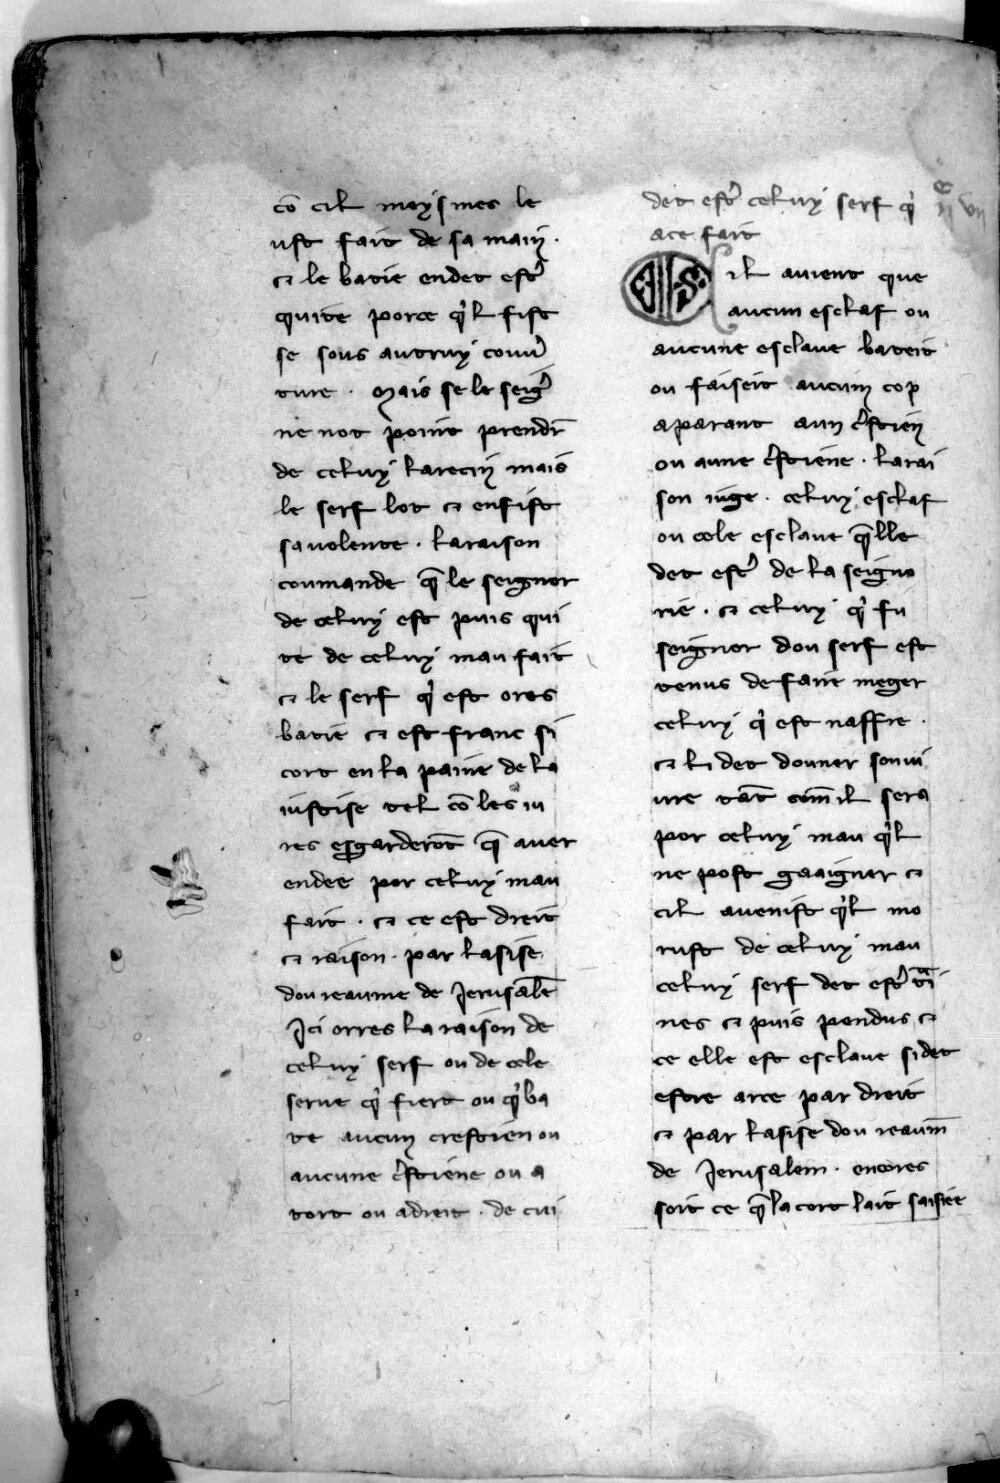 cõ cil meysmes le
ust fait de sa main .
⁊ le batie en det estr̾
quite por ce q̾l fist
se sous autruy couv̾
ture . Mais se le seig̾r
ne not point prendr̾
de celuy larecin mais
le serf lot ⁊ en fist
sa volente . la raison
coumande q̃ le seignor
de celuy est puis qui
te de celuy mau fait
⁊ le serf q̾ est ores
batie ⁊ est franc si
cort en la paine de la
iustise tel cõ les iu
res esgarderõt q̃ aver
en dee por celuy mau
fait . ⁊ ce est dreit
⁊ raison . par lasise
dou reaume de Jerusalẽ
Ici orres la raison de
celuy serf ou de cele
serve q̾ fiert ou q̾ ba
te aucun crestien ou
aucune c̾stiene ou a
tort ou a dreit . de cui
det estr̾ celuy serf q̾
ace fait
Sil avient que
aucun esclaf ou
aucune esclave bateit
ou faiseit aucun cop
aparant a un c̾stien
ou a une c̾stiene . la rai
son iuge . celuy esclaf
ou cele esclave q̃lle
det estr̾ de la seigno
rie . ⁊ celuy q̾ fu
seignor dou serf est
tenus de faire meger
celuy q̾ est naffre .
⁊ li det douner son vi
vre tãt com̃ il sera
por celuy mau q̾l
ne post gaaigner ⁊
cil avenist q̾l mo
rust de celuy mau
celuy serf det estr̾ tͣi
nes ⁊ puis pendus ⁊
ce elle est esclave si det
estre arce par dreit
⁊ par lasise dou reaum̃
de Jerusalem . encores
soit ce q̃ la cort lait saisiee